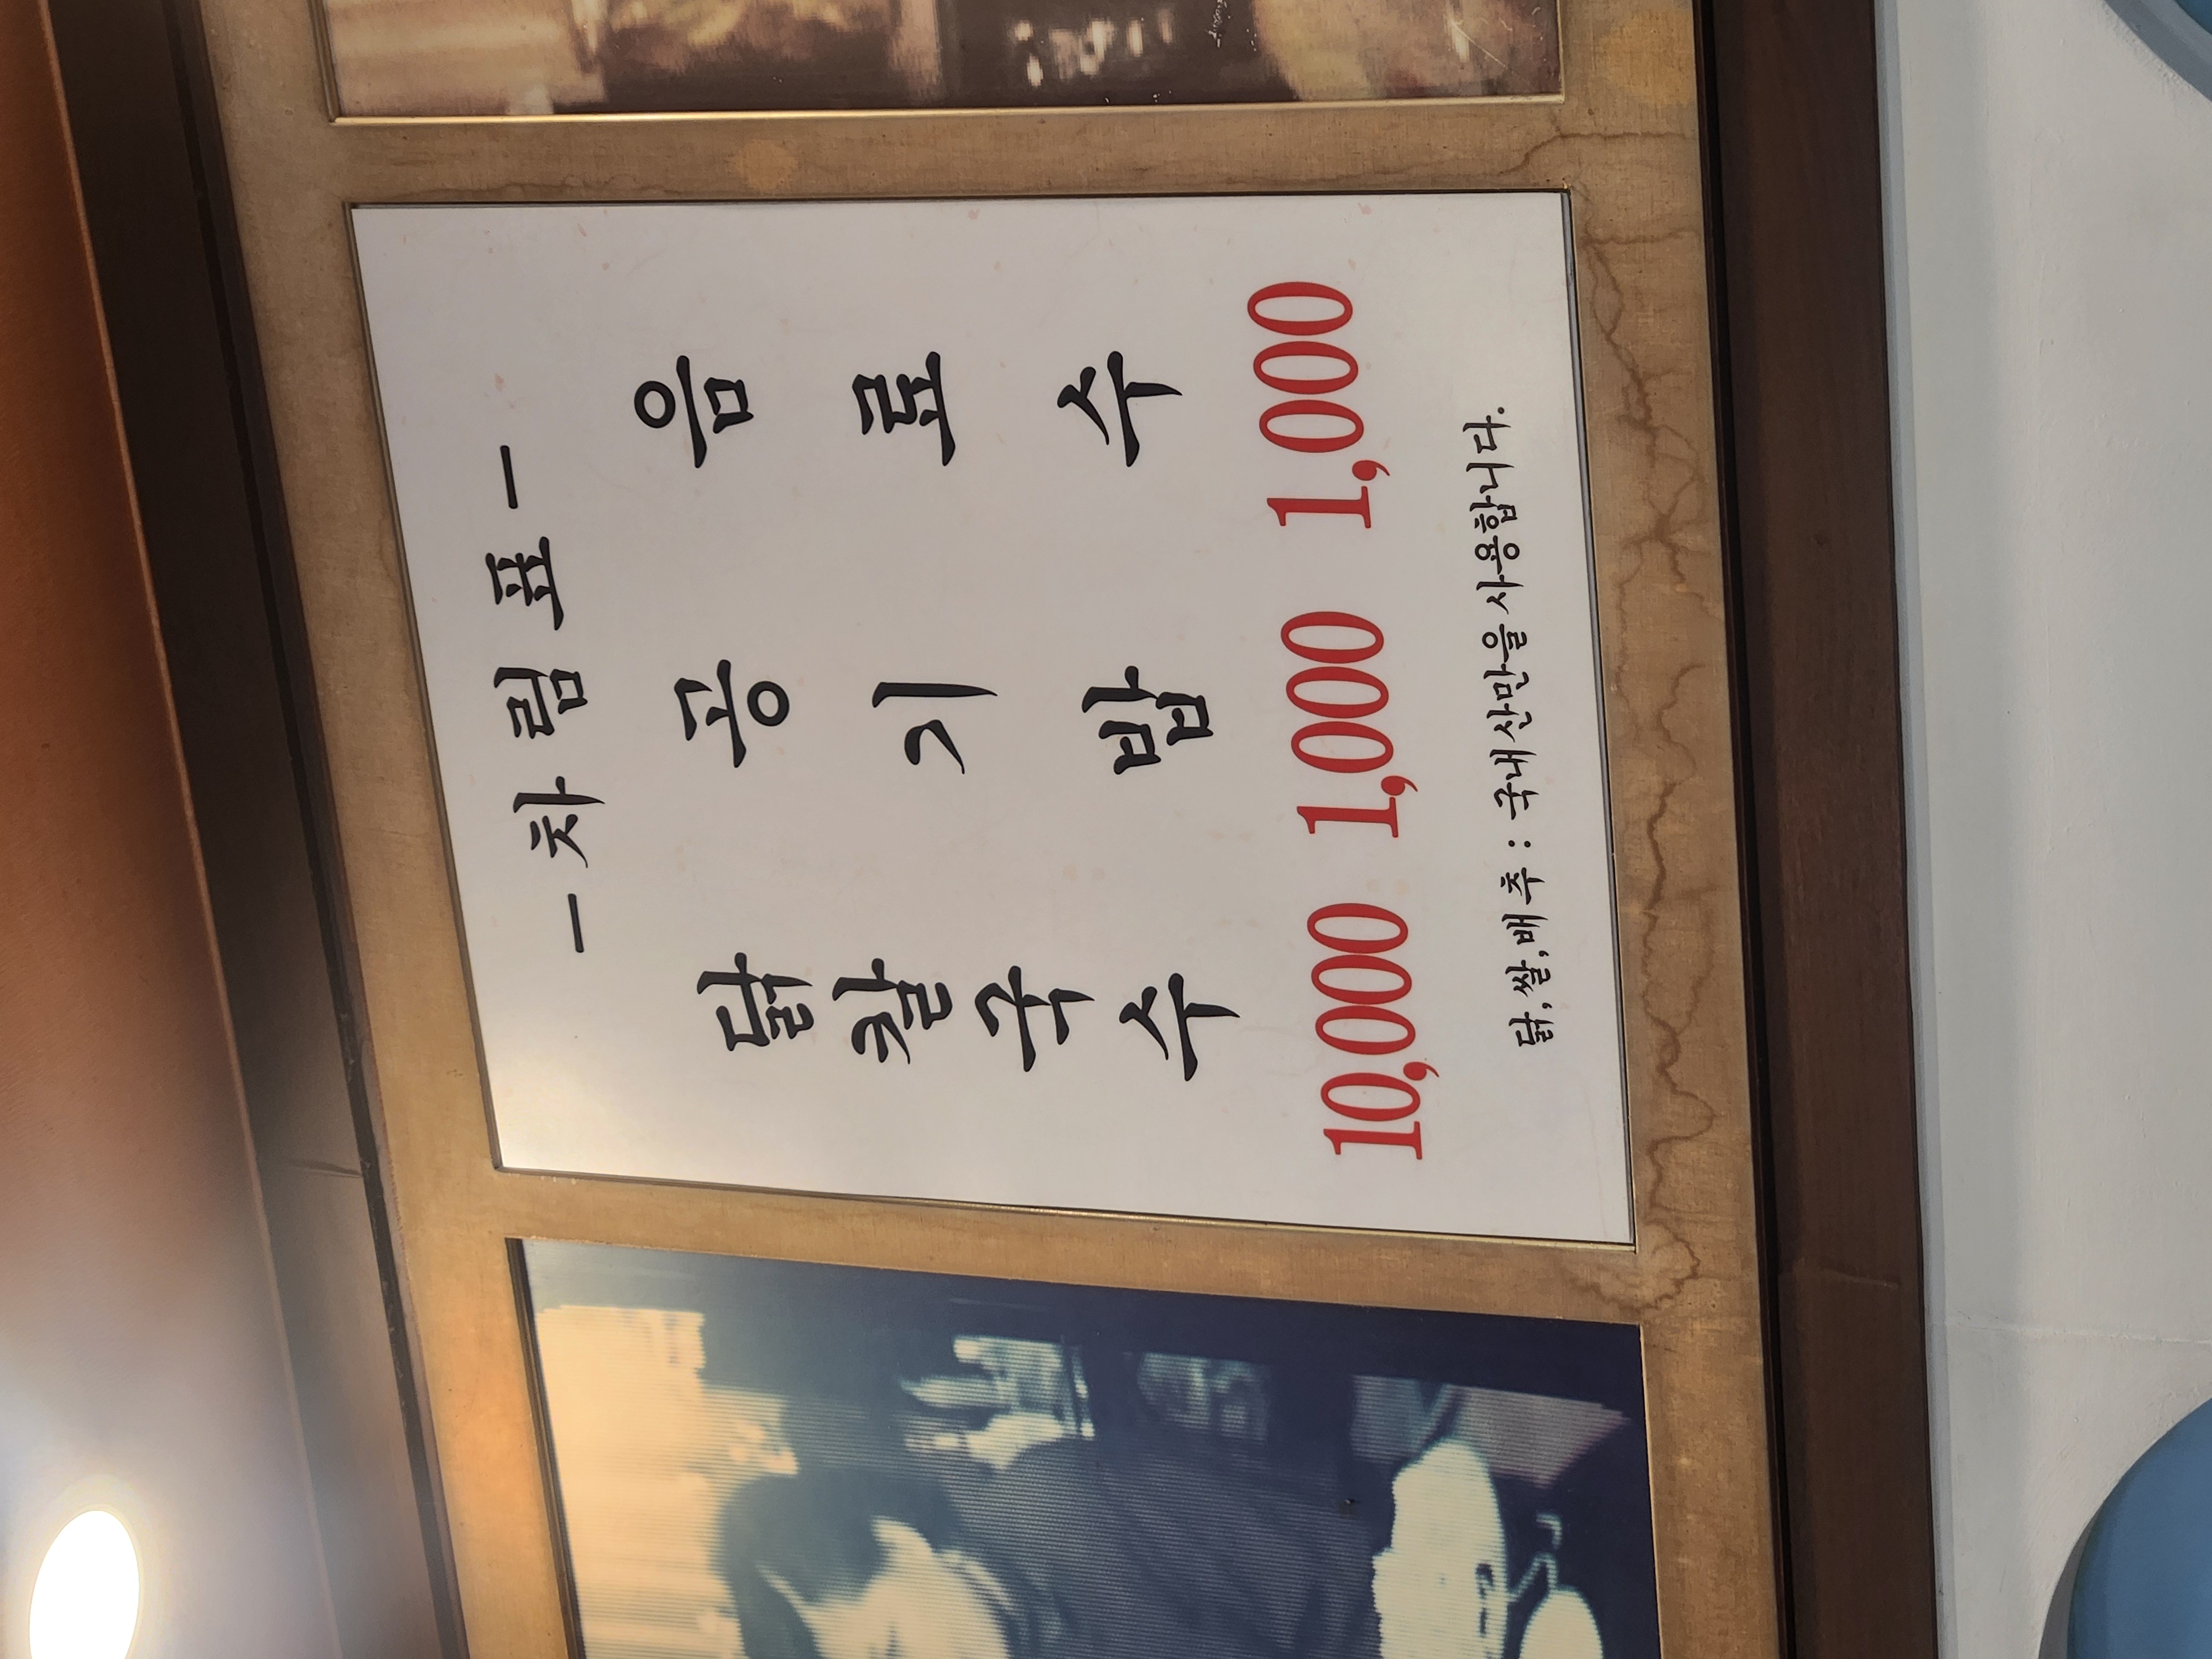 - 차 림 표 -
닭칼국수 공기밥 음료수
10,000 1,000 1,000
닭,쌀,배추 : 국내산만을 사용합니다.